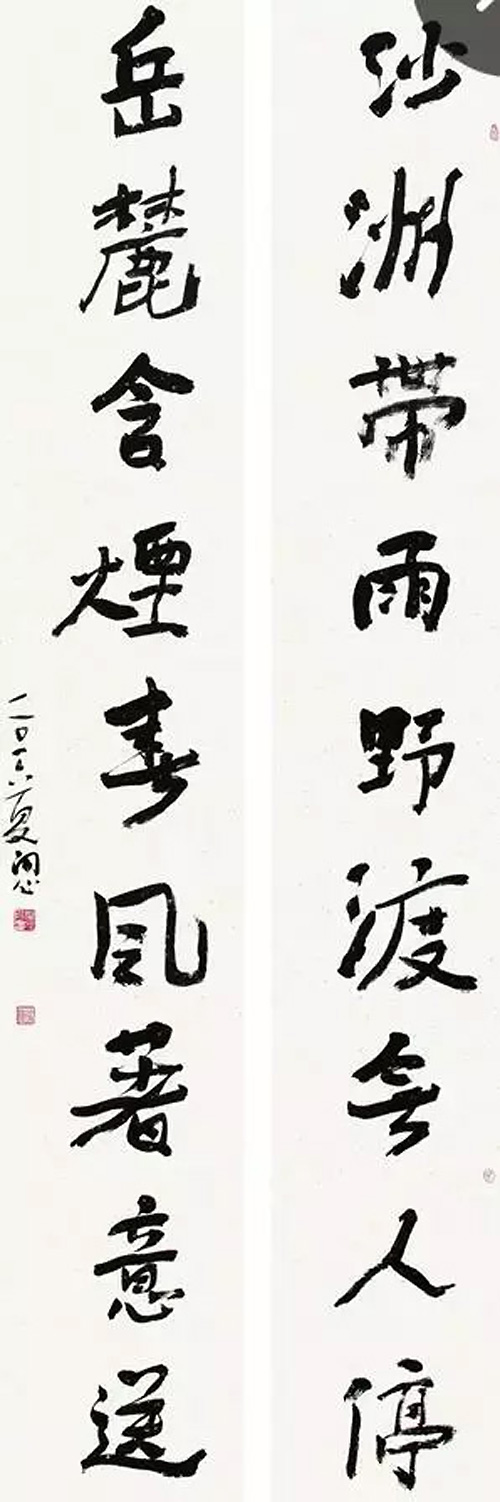 沙洲帶雨野渡無人停
岳麓含煙春風著意送
二〇一六夏